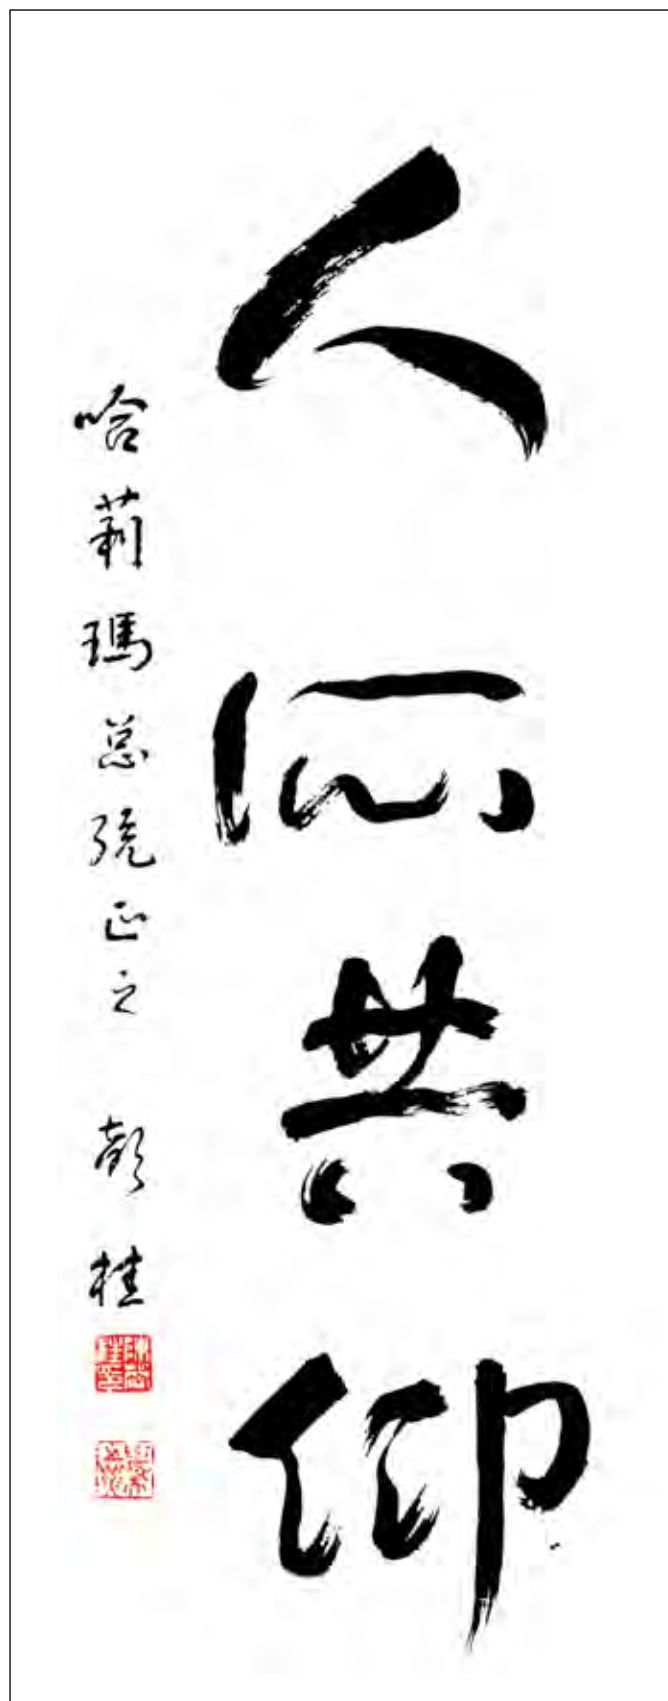 人所共仰
哈莉瑪总统正之 聲桂